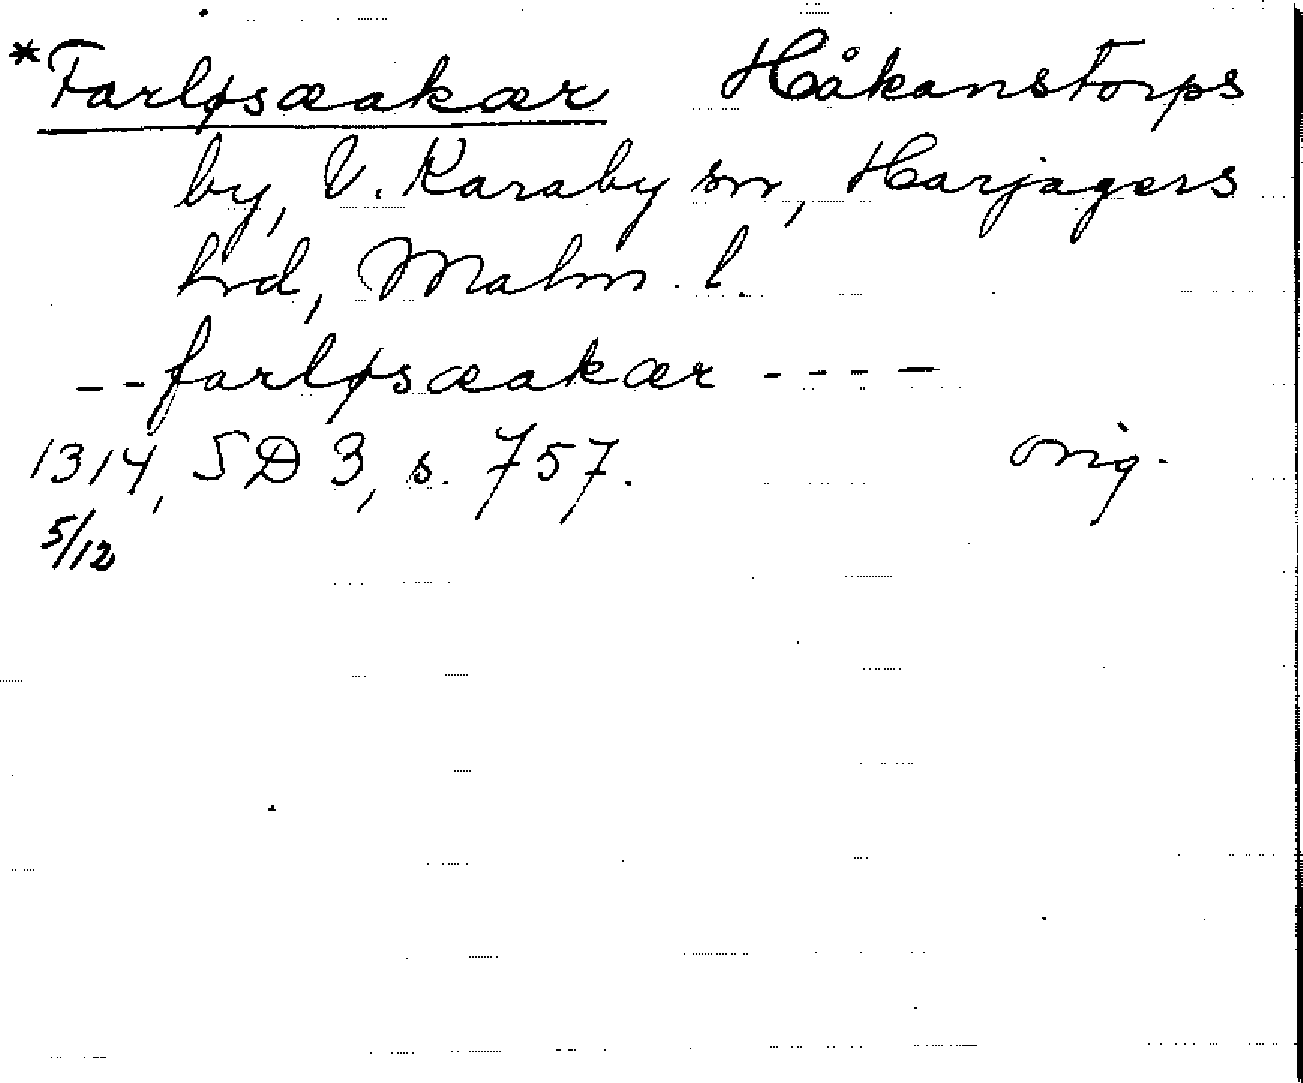 *Farløsæakær Håkanstorps
by, V. Karaby sn, Harjagers
hd, Malm. l.
--farløsæakær----
1314, SD 3, s. 757. orig.
5/12